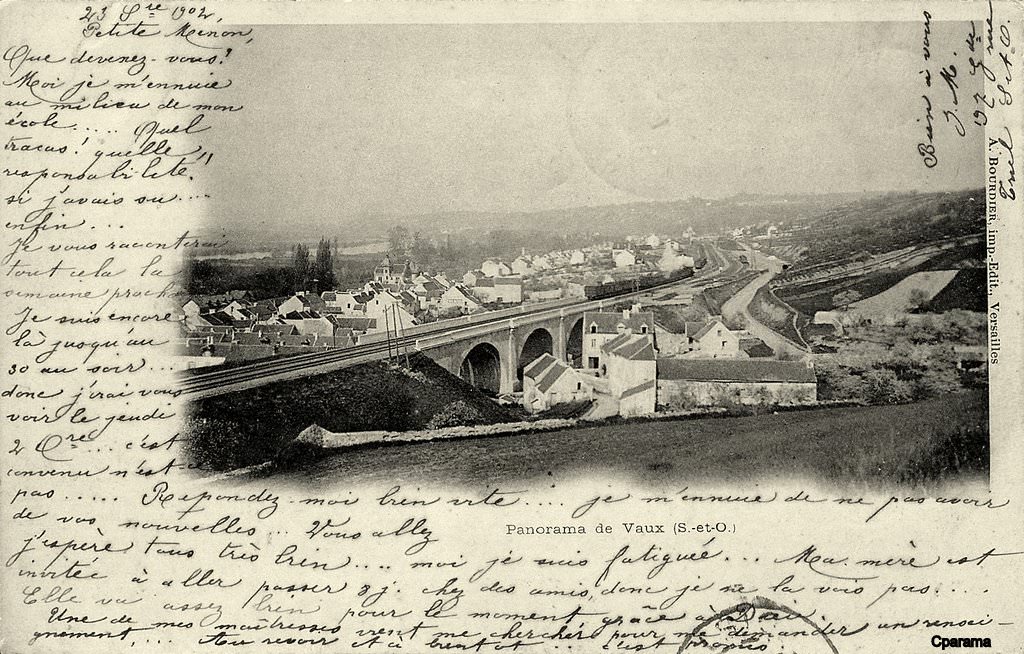 23 7re 1902,
Petite Minon,
Que devenez-vous?
Moi je m'ennuie
au milieu de mon
école..... Quel
tracas! quelle
responsabilité!!
si j'avais su....
enfin...
Je vous raconterai
tout cela la
semaine proch
Je suis encore
là jusqu'au
30 au soir...
donc j'irai vous
voir le jeudi
2 8re... c'est
convenu n'est-
pas..... Répondez-moi bien vite.... je m'ennuie de ne pas avoir
de vos nouvelles... Vous allez
j'espère tous très bien.... moi je suis fatiguée... Ma mère est
invitée à aller passer 8 j. chez des amis, donc je ne la vois pas....
Elle va assez bien pour le moment grâce à Dieu.
Une de mes maîtresses vient me chercher pour me demander un rensei-
gnement,... Au revoir et à bientôt... c'est promis.
Bien à vous
J. M.
197 Gde rue
S.et.O.
A. BOURDIER, imp.-Edit., Versailles
Panorama de Vaux (S.-et-O.)
Cparama